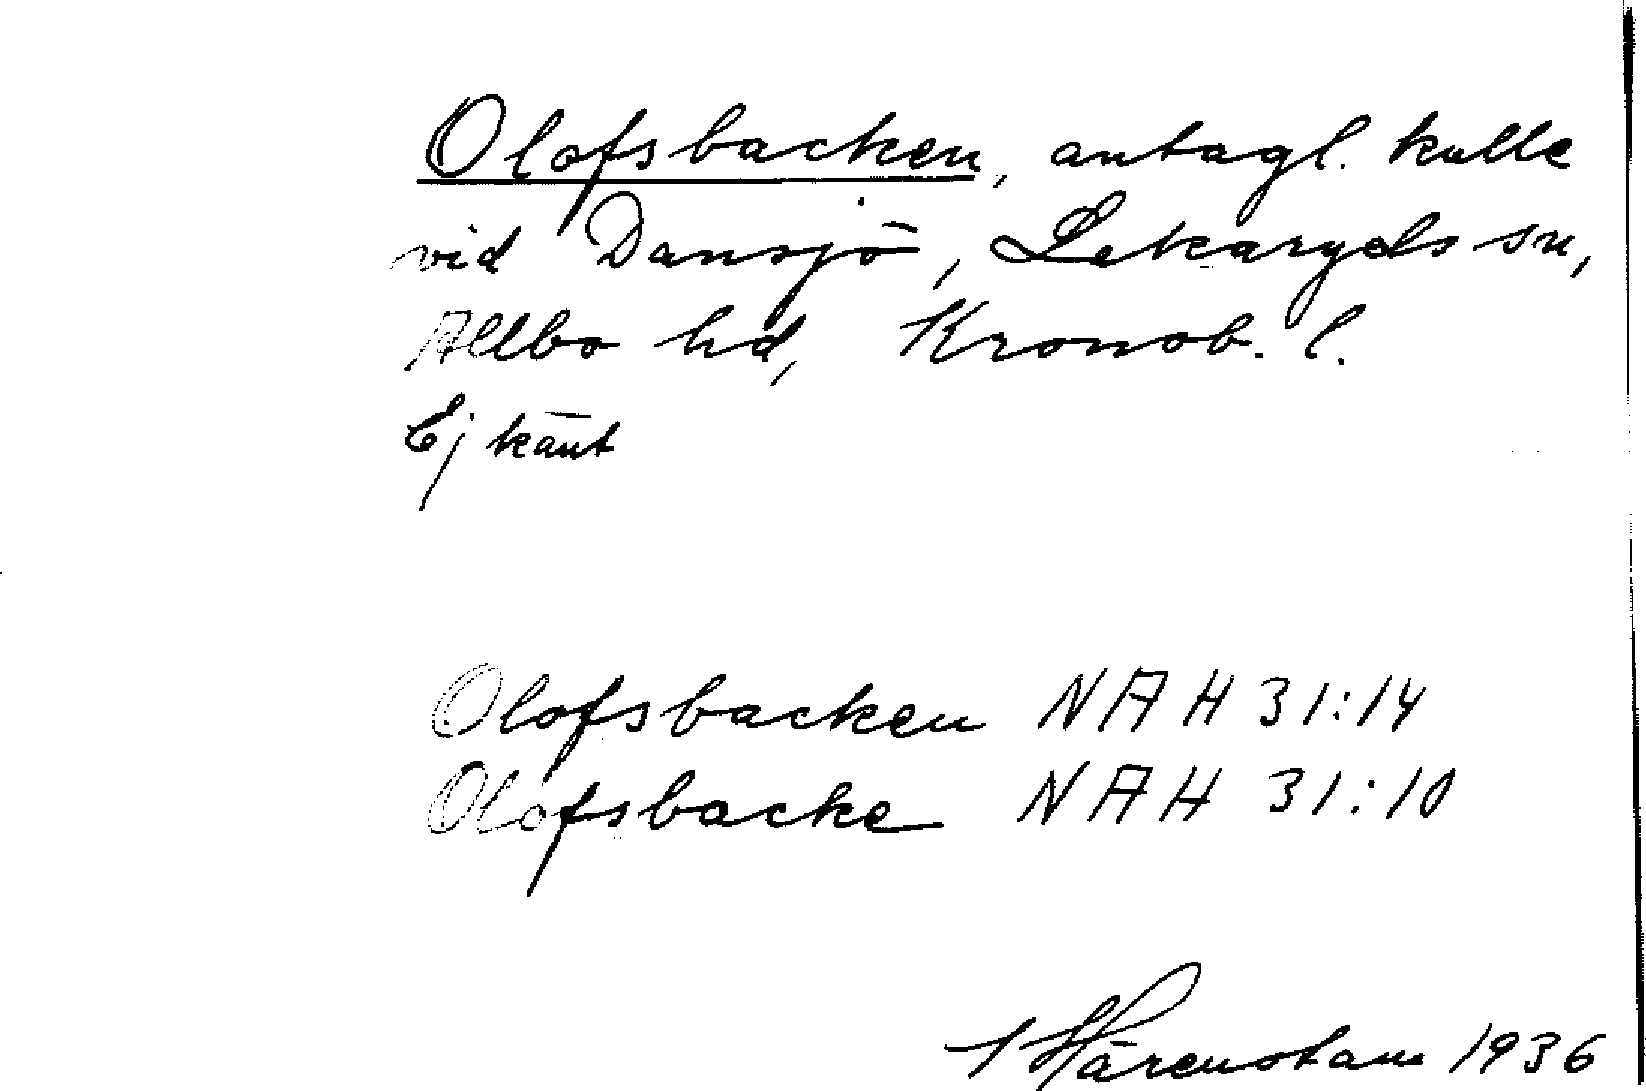 Olofsbacken, antagl. kulle
vid Dansjö, Lekaryds sn,
Allbo hd, Kronob. l.
Ej känt
Olofsbacken NAH 31:14
Olofsbacke NAH 31:10
Härenstam 1936